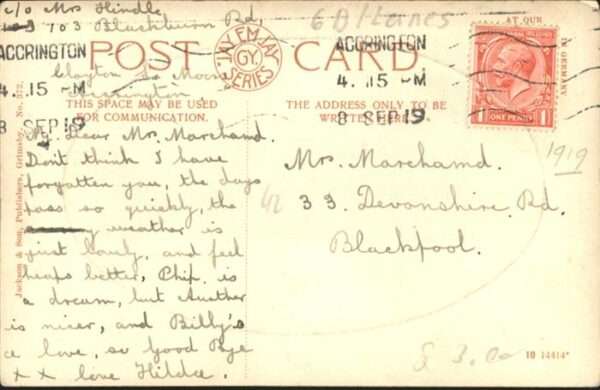 c/o Mrs Hindle
103 Blackburn Rd,
Clayton le Moors
Accrington
6 B/Lanes
ACCRINGTON
4. 15 - M
8 SEP 19
ACCRINGTON
4. 15 - M
8 SEP 19
POST CARD
JAY EM JAY
GY.
SERIES
THIS SPACE MAY BE USED
FOR COMMUNICATION.
THE ADDRESS ONLY TO BE
WRITTEN HERE.
AT OUR
IN GERMANY
ONE PENNY
My dear Mrs. Marchamd.
Don't think I have
forgotten you, the days
pass so quickly, the
weather is
just lovely, and feel
heaps better, Chip. is
a dream, but Author
is nicer, and Billy's
love, so Good Bye
x x love Hilda.
Mrs. Marchamd.
33. Devonshire Rd.
Blackpool.
1919
42
Jackson & Son, Publishers, Grimsby, No.
10 14414*
£ 3.00